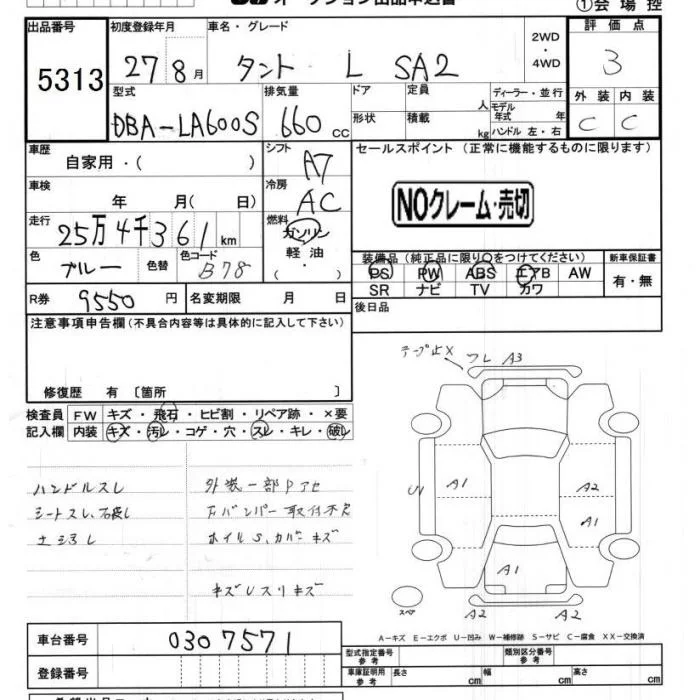 ①会場控
出品番号 初度登録年月 車名・グレード 2WD・4WD 評価点
5313 27 8月 タント L SA2 3
型式 排気量 ドア 定員 人 ディーラー・並行 外装 内装
DBA-LA600S 660cc 形状 積載 kg モデル年式 年 ハンドル 左・右 C C
車歴 自家用・( ) シフト A7 セールスポイント (正常に機能するものに限ります)
車検 年 月( 日) 冷房 AC NOクレーム・売切
走行 25万4千361km 燃料 ガソリン 軽油 ( ・ )
色 ブルー 色替 色コード B78 装備品 (純正品に限り○をつけてください) 新車保証書
PS PW ABS エアB AW 有・無
SR ナビ TV カワ
R券 9550円 名変期限 月 日 後日品
注意事項申告欄 (不具合内容等は具体的に記入して下さい)
テープ止X フレ A3
修復歴 有 〔箇所 〕
検査員 FW キズ・飛石・ヒビ割・リペア跡・×要
記入欄 内装 キズ・汚レ・コゲ・穴・スレ・キレ・破レ
U1 A1 A2
ハンドルスレ 外装一部Pアセ
A1
シートスレ、破レ バンパー取付不良
ホイルS、カバーキズ
A1
キズUスリキズ
スペア A2 A2
A-キズ E-エクボ U-凹み W-補修跡 S-サビ C-腐食 XX-交換済
車台番号 0307571
型式指定番号 参考 類別区分番号 参考
登録番号 車庫証明用 参考 長さ cm 幅 cm 高さ cm